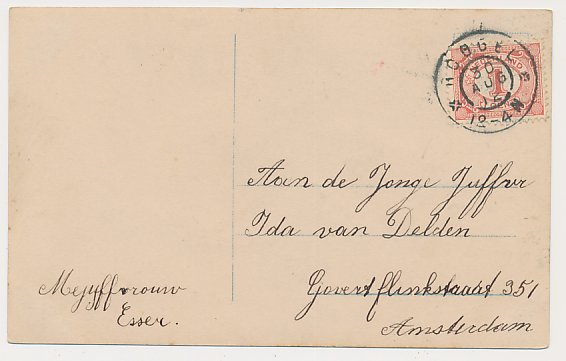 30
AUG
12-4N
1
Aan de Jonge Juffvr
Ida van Delden
Govertflinkstraat 351
Amsterdam
Mejuffvrouw
Esser.